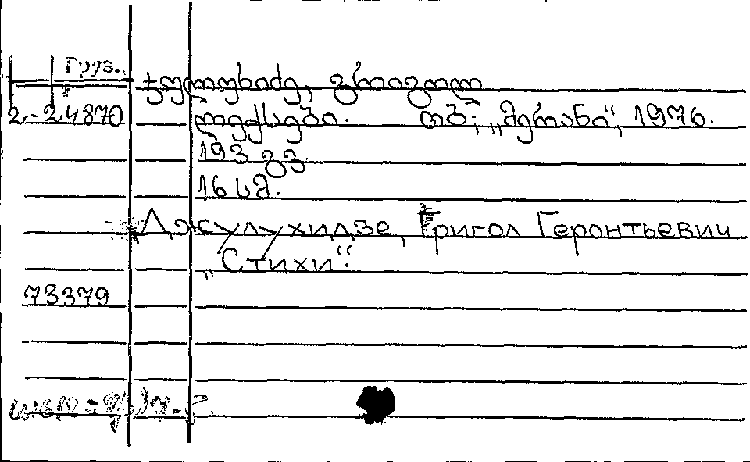 Груз.
ჯულუხიძე, გრიგოლ
2.-24870 ლექსები. თბ., „მერანი“, 1976.
193 გვ
16 სმ.
Джулухидзе, Григол Геронтьевич
„Стихи“.
73379